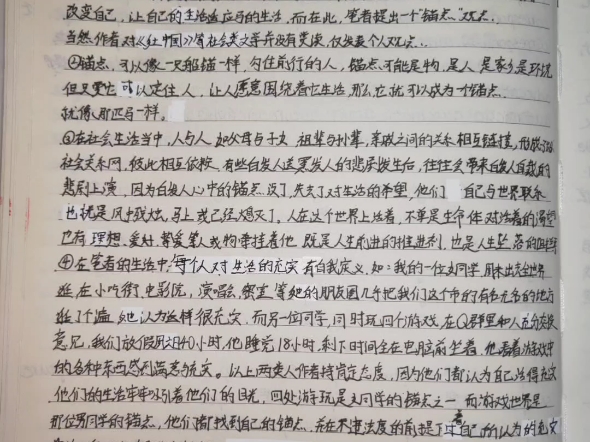 改变自己，让自己的生活适应与的生活，而在此，笔者提出一个"锚点"观点。
当然作者对《红中国》等社会类文字并没有烫读，仅发表个人观点。
②锚点，可以像一只船锚一样，勾住前行的人，锚点可能是物，是人，是家乡是环境
但只要它可以定住人，让人愿意围绕着它生活，那么它就可以成为一个锚点。
就像那匹马一样。
③在社会生活当中，人与人，如父母与子女，祖辈与孙辈，亲戚之间的关系相互链接，形成
社会关系网，彼此相互依赖，有些白发人送黑发人的悲剧发生后，往往会带来白发人自杀的
悲剧上演，因为白发人心中的锚点没了，失去了对生活的希望，他们 自己与世界联系
也就是风中残烛，马上或已经熄灭了，人在这个世界上活着，不单是生命体对活着的渴望
也有理想、爱好、挚爱家人或物牵挂着他，既是人生前进的推进剂，也是人生坠落的
④在笔者的生活中，每个人对生活的充实有自我定义，如：我的一位女同学，周末出去全世界
逛，在小吃街、电影院，演唱会，蜜雪等她的朋友圈几乎把我们这个市的有名无名的地方
逛了个遍，她认为这样很充实，而另一位同学，同时玩四个游戏，在Q群里和人充分交换
意见，我们放假形式40小时，他睡觉18小时，剩下时间全在电脑前坐着，他看着游戏中
的各种东西感到满意与充实。以上两类人作者持肯定态度，因为他们都认为自己活得充实
他们的生活牢牢吸引着他们的目光，四处游玩是女同学的锚点之一，而游戏世界是
那位男同学的锚点，他们都找到自己的锚点，并在不违法度的前提下过着自己所认为的充实